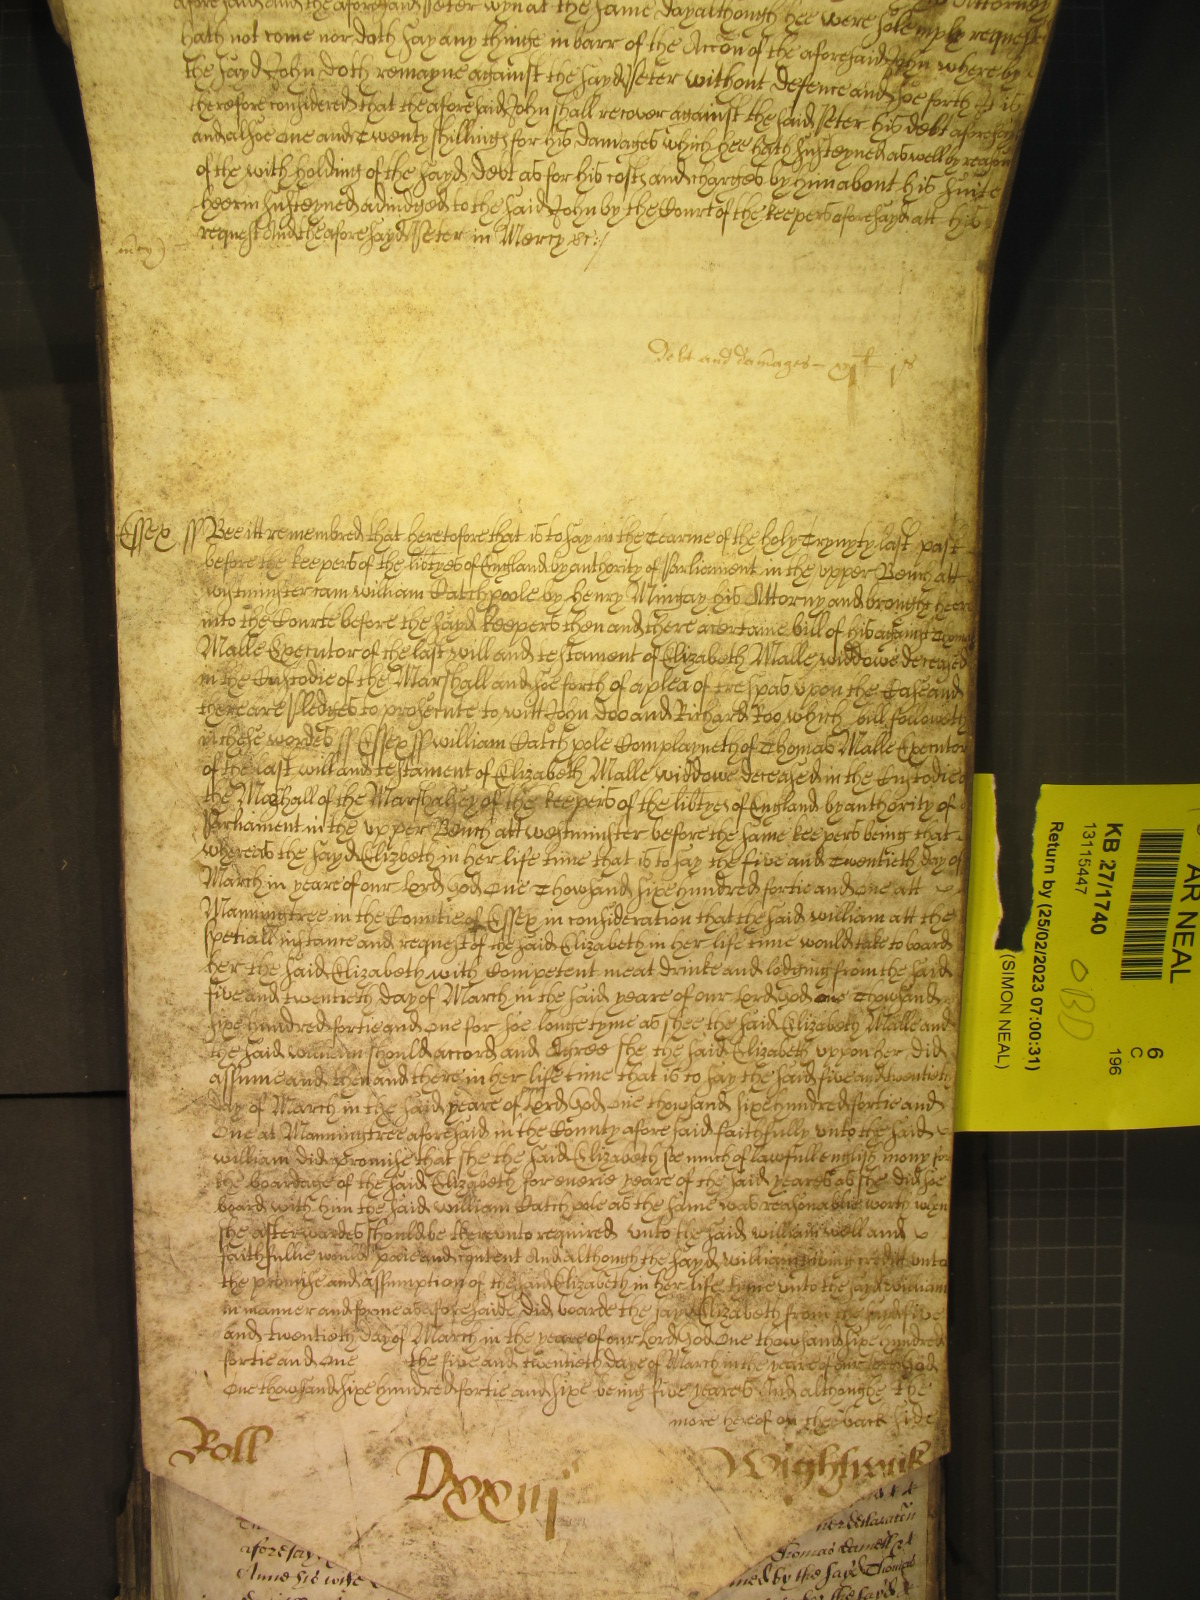 aforesaid and the aforesaid Peter Wyn att the same day although hee were solemply request
hath not come nor doth say any thinge in barr of the Accon of the aforesaid John where by
the sayd John doth remayne against the sayd Peter without defence and soe forth It is
therefore considered that the aforesaid John shall recover against the said Peter his debt aforesayd
and alsoe one and twenty shillings for his damages which hee hath susteyned as well by reason
of the with holding of the sayd debt as for his costs and charges by him about his suite
herein susteyned adiudged to the said John by the Court of the keepers aforesayd att his
request And the aforesayd Peter in Mercy &c:/
mcy)
Debt and damages
Essex ss Bee itt remembred that heretofore that is to say in the Tearme of the holy Trynyty last past
before the keepers of the libtyes of England by authority of Parliament in the upper Bench att
Westminster cam William Catchpoole by Henry Mingay his Attorny and brought heere
into the Courte before the sayd keepers then and there a certaine bill of his against Thomas
Malle Executor of the last will and testament of Elizabeth Malle widdowe deceased
in the Custodie of the Marshall and soe forth of a plea of trespas upon the Case and
there are Pledges to prosecute to witt John Doo and Richard Roo which bill followeth
in these wordes ss Essex ss William Catchpole Complayneth of Thomas Malle Executor
of the last will and testament of Elizabeth Malle widdowe deceased in the Custodie of
the Marshall of the Marshalsey of the keepers of the libtyes of England by authority of
Parliament in the upper Bench att Westminster before the same keepers being that
whereas the sayd Elizabeth in her life time that is to say the five and Twentieth day of
March in yeare of our Lord God One Thowsand sixe hundred fortie and one att
Manningtree in the Countie of Essex in consideration that the said William att the
speciall instance and request of the said Elizabeth in her life time would take to board
her the said Elizabeth with Competent meat drinke and lodging from the said
five and twentieth day of March in the said yeare of our Lord God one Thowsand
sixe hundred fortie and one for soe longe tyme as shee the said Elizabeth Malle and
the said William should accord and Agree she the said Elizabeth uppon her did
assume and then and there in her life time that is to say the said five and twentieth
day of March in the said yeare of Lord God one thowsand sixe hundred fortie and
One at Manningtree aforesaid in the County aforesaid faithfully unto the said
William did promise that she the said Elizabeth soe much of lawfull english mony for
the boardage of the said Elizabeth for everie yeare of the said yeares as she did soe
board with him the said William Catchpole as the same was reasonablie worth when
she afterwardes should be thereunto required unto the said William well and
faithfullie would paie and content And although the sayd William giving creditt unto
the promise and assumption of the said Elizabeth in her life time unto the sayd William
in manner and forme as aforesaide did boarde the said Elizabeth from the said five
and twentieth day of March in the yeare of our Lord God One thowsand sixe hundred
fortie and one the five and twentieth daye of March in the yeare of our Lord God
One thowsand sixe hundred fortie and sixe being five yeares And althoughe the
more hereof on the back side
Roll
Dxxiij
Wightwik
aforesay
Anne his wife
her declaracon
Thomas
ned by the sayd Thomas
by the sayd
AR NEAL
6
C
196
KB 27/1740
13115447
Return by (25/02/2023 07:00:31)
(SIMON NEAL)